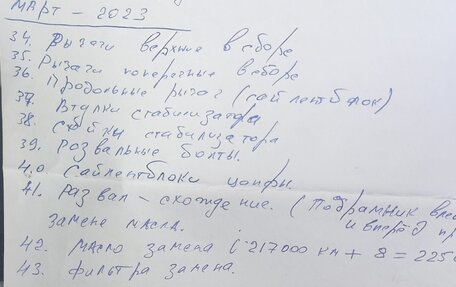 МАРТ - 2023
34. Рычаги верхние в сборе
35. Рычаги поперечные в сборе
36. Продольные рычаг (сайлентблок)
37. Втулки стабилизатора
38. Стойки стабилизатора
39. Розвальные болты.
40 Сайлентблоки цапфы.
41. Развал - схождение. (Подрамник
и вперёд
замене масла.
42. масло замена (217000 км + 8 = 225
43. фильтра замена.